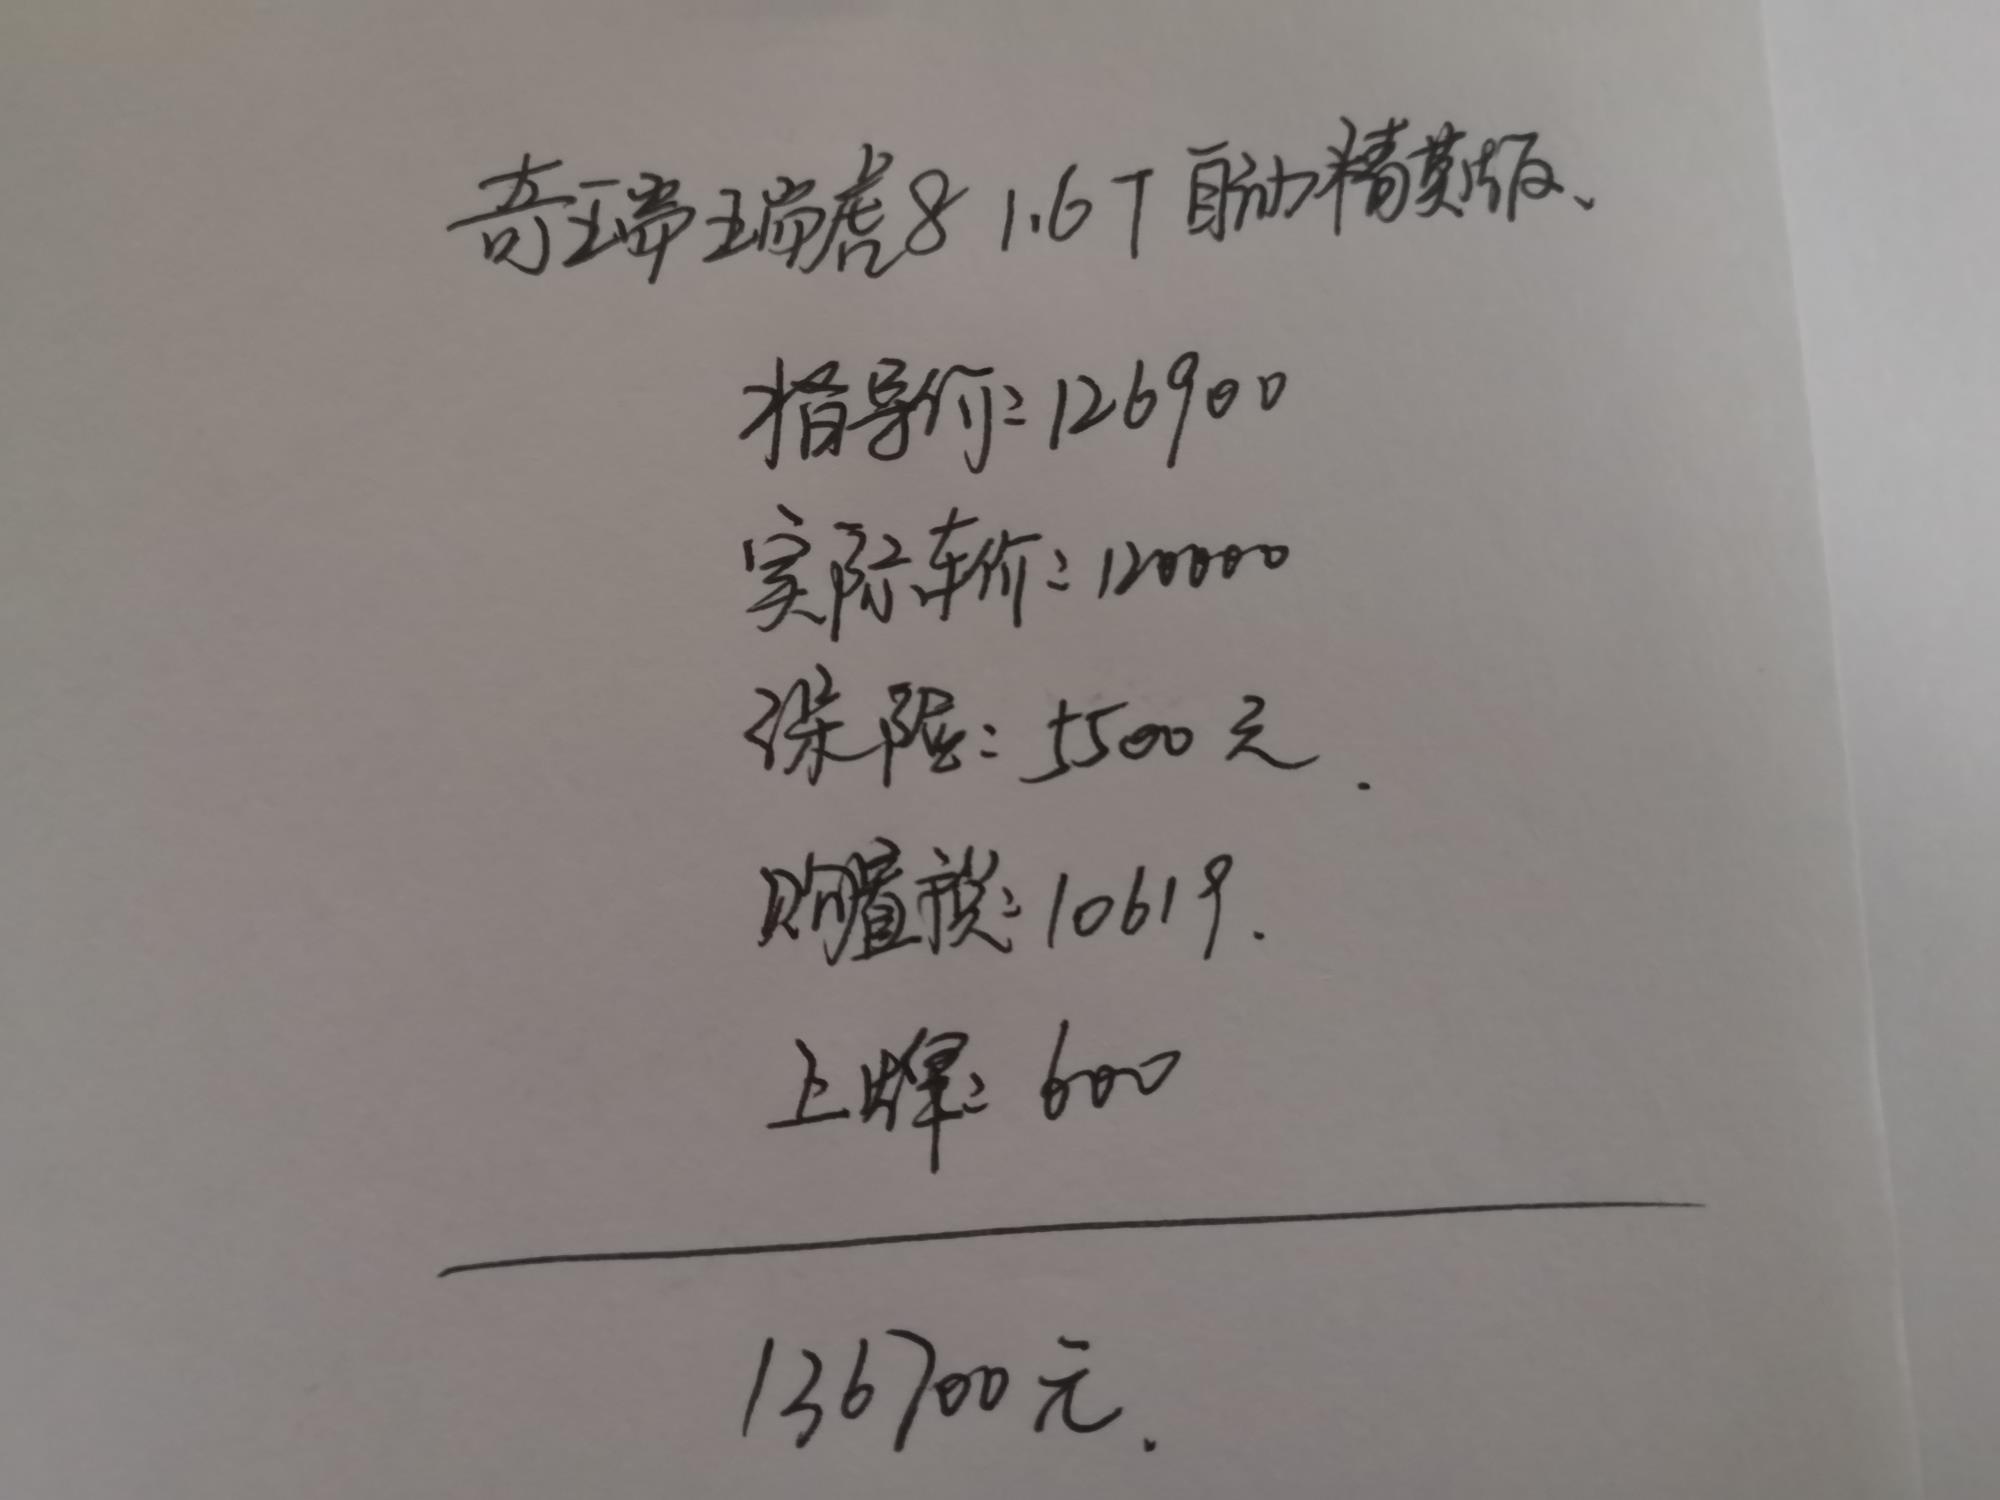 奇瑞瑞虎8 1.6T 自动精英版、
指导价:126900
实际车价:120000
保险:5500元.
购置税:10619.
上牌:600
136700元.